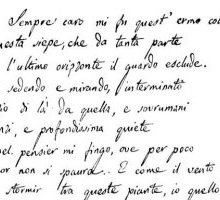 Sempre caro mi fu quest' ermo co
uesta siepe, che da tanta parte
l'ultimo orizzonte il guardo esclude.
sedendo e mirando, interminato
io di là da quella, e sovrumani
nzi, e profondissima quiete
el pensier mi fingo, ove per poco
or non si spaura. E come il vento
stormir tra queste piante, io quello